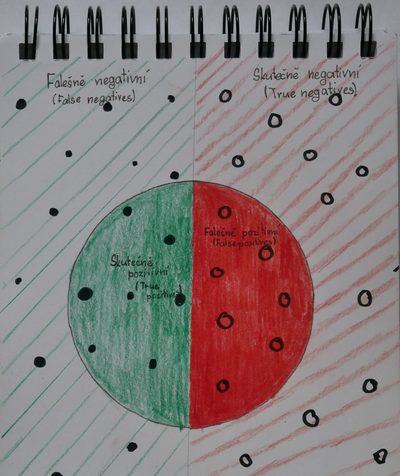 Falešně negativní
(False negatives)
Skutečně negativní
(True negatives)
Skutečně
pozitivní
(True
positives)
Falešně pozitivní
(False positives)